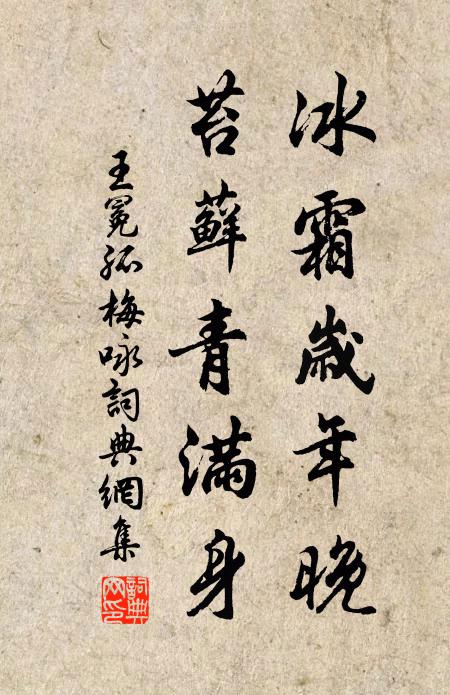 冰霜歲年晚
苔蘚青滿身
王冕孤梅咏詞典網集
詞典
网印